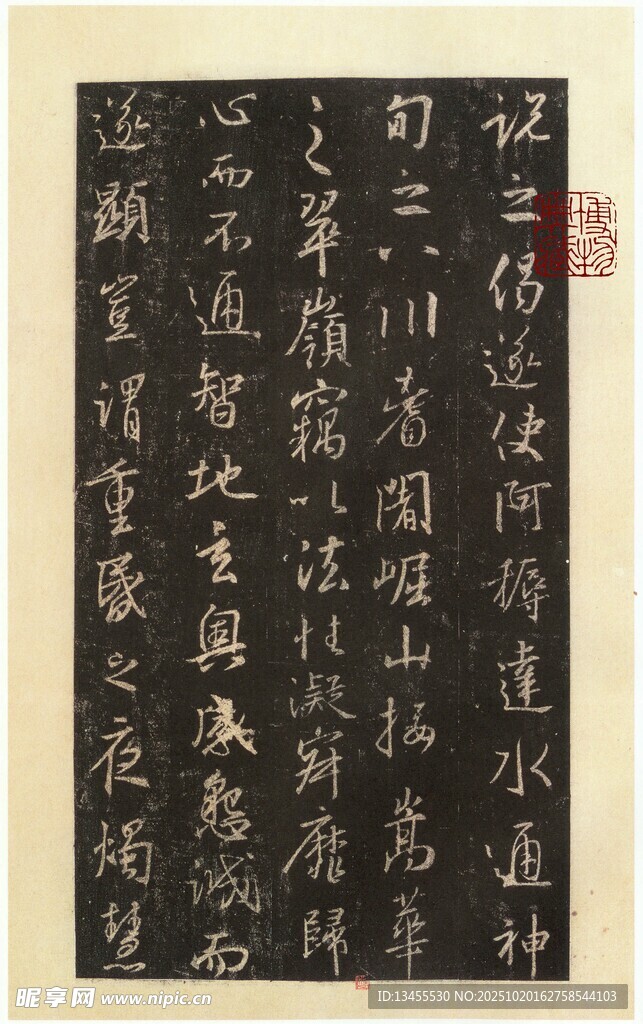 說之偈遂使阿耨達水通神
旬之八川耆闍崛山接嵩華
之翠嶺竊以法性凝寂靡歸
心而不通智地玄奧感懇誠而
遂顯豈謂重昏之夜燭慧
博物
昵享网 www.nipic.cn
ID:13455530 NO:20251020162758544103